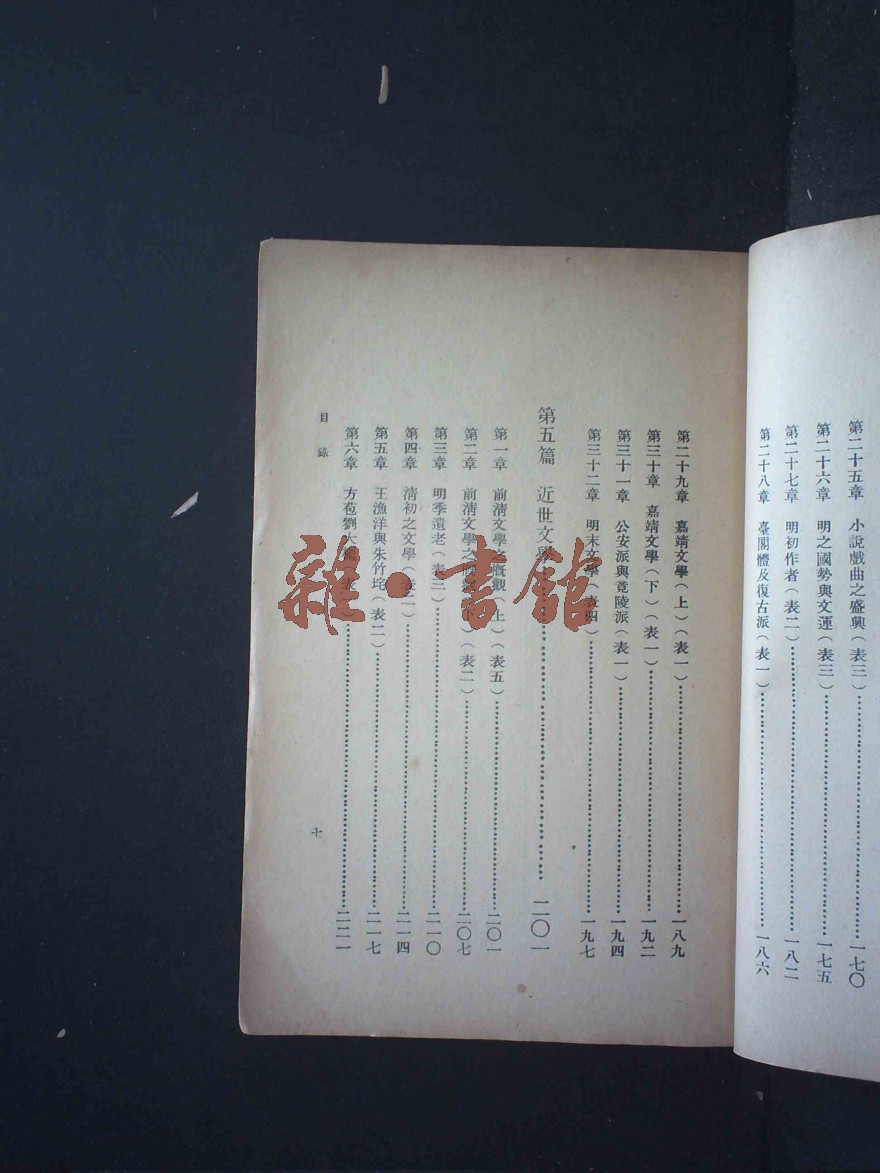 第二十五章　小說戲曲之盛興（表三）……一七〇
第二十六章　明之國勢與文運（表三）……一七五
第二十七章　明初作者（表二）……一八二
第二十八章　臺閣體及復古派（表一）……一八六
第二十九章　嘉靖文學（上）（表一）……一八九
第三十章　嘉靖文學（下）（表一）……一九二
第三十一章　公安派與竟陵派（表一）……一九四
第三十二章　明末文學（表四）……一九七
第五篇　近世文學……二〇一
第一章　前清文學之概觀（上）（表五）……二〇一
第二章　前清文學之概觀（下）（表二）……二〇七
第三章　明季遺老（表三）……二一〇
第四章　清初之文學（表二）……二一四
第五章　王漁洋與朱竹垞（表二）……二一七
第六章　方苞劉大……二二一
目錄
七
雜·書館